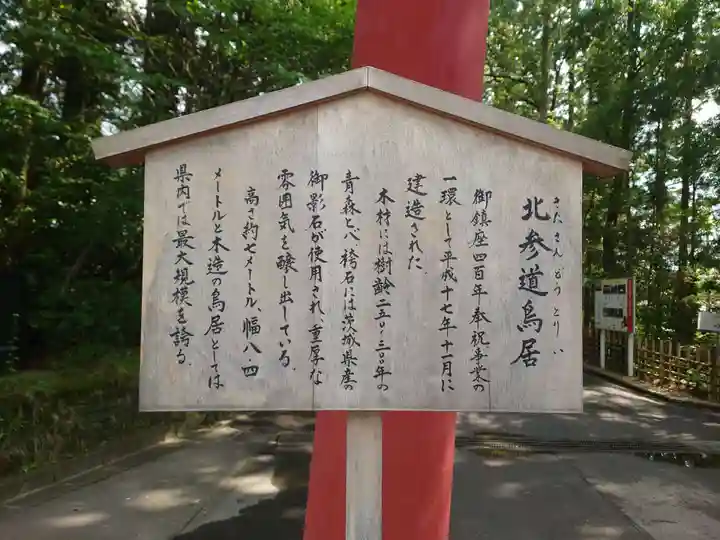 きたさんどうとりい
北参道鳥居
御鎮座四百年奉祝事業の
一環として平成十七年十一月に
建造された.
木材には樹齢二五〇〜三〇〇年の
青森ヒバ、袴石には茨城県産の
御影石が使用され、重厚な
雰囲気を醸し出している.
高さ約七メートル、幅八・四
メートルと木造の鳥居としては
県内では最大規模を誇る.